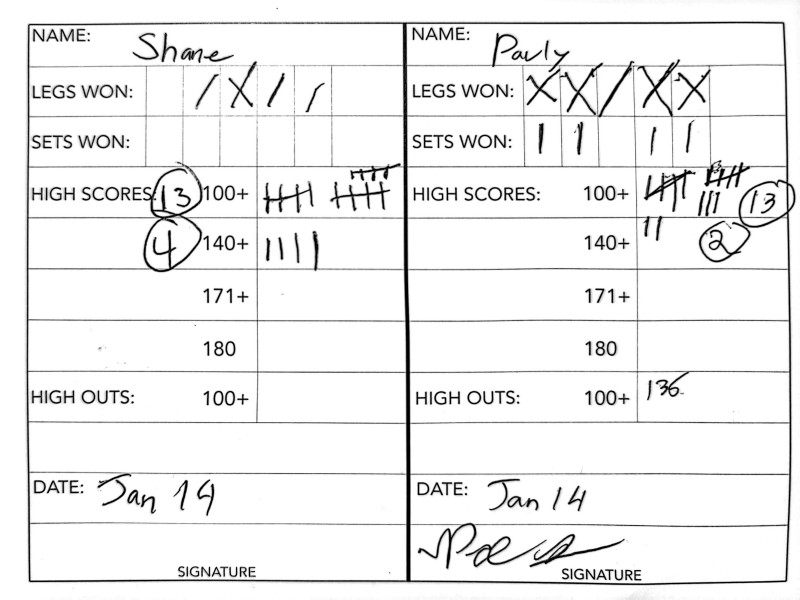 NAME: Shane
LEGS WON: / X / /
SETS WON:
HIGH SCORES: 13 100+
4 140+ ||||
171+
180
HIGH OUTS: 100+
DATE: Jan 14
SIGNATURE
NAME: Pauly
LEGS WON: X X / X X
SETS WON: | | | |
HIGH SCORES: 100+ 13
140+ || 2
171+
180
HIGH OUTS: 100+ 136
DATE: Jan 14
SIGNATURE